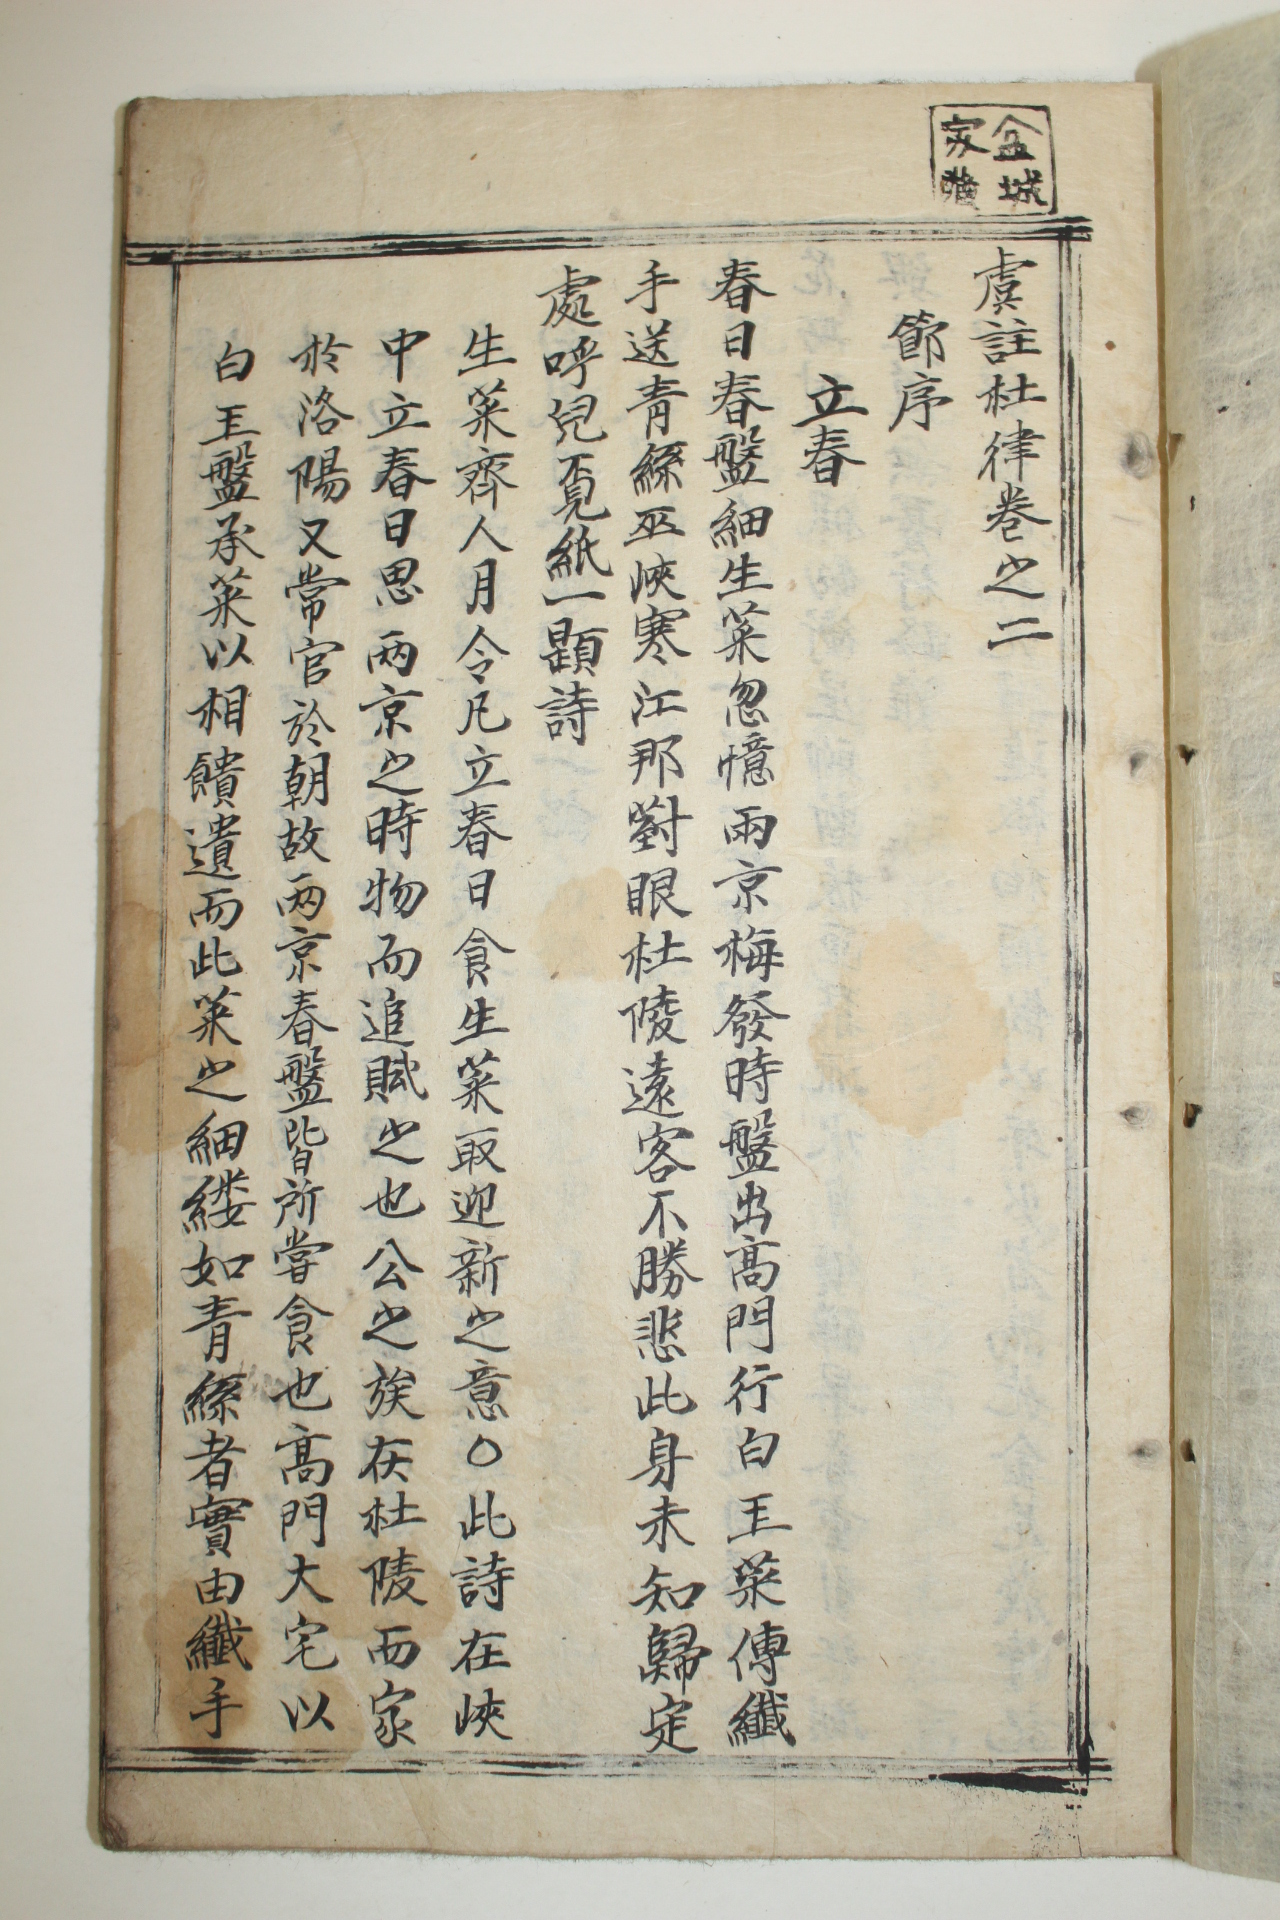 金城
家藏
虞註杜律卷之二
節序
立春
春日春盤細生菜忽憶兩京梅發時盤出高門行白玉菜傳纖
手送青絲巫峽寒江那對眼杜陵遠客不勝悲此身未知歸定
處呼兒覓紙一題詩
生菜齊人月令凡立春日食生菜取迎新之意〇此詩在峽
中立春日思两京之時物而追賦之也公之族在杜陵而家
於洛陽又常官於朝故两京春盤皆所嘗食也高門大宅以
白玉盤承菜以相饋遺而此菜之細縷如青絲者實由纖手